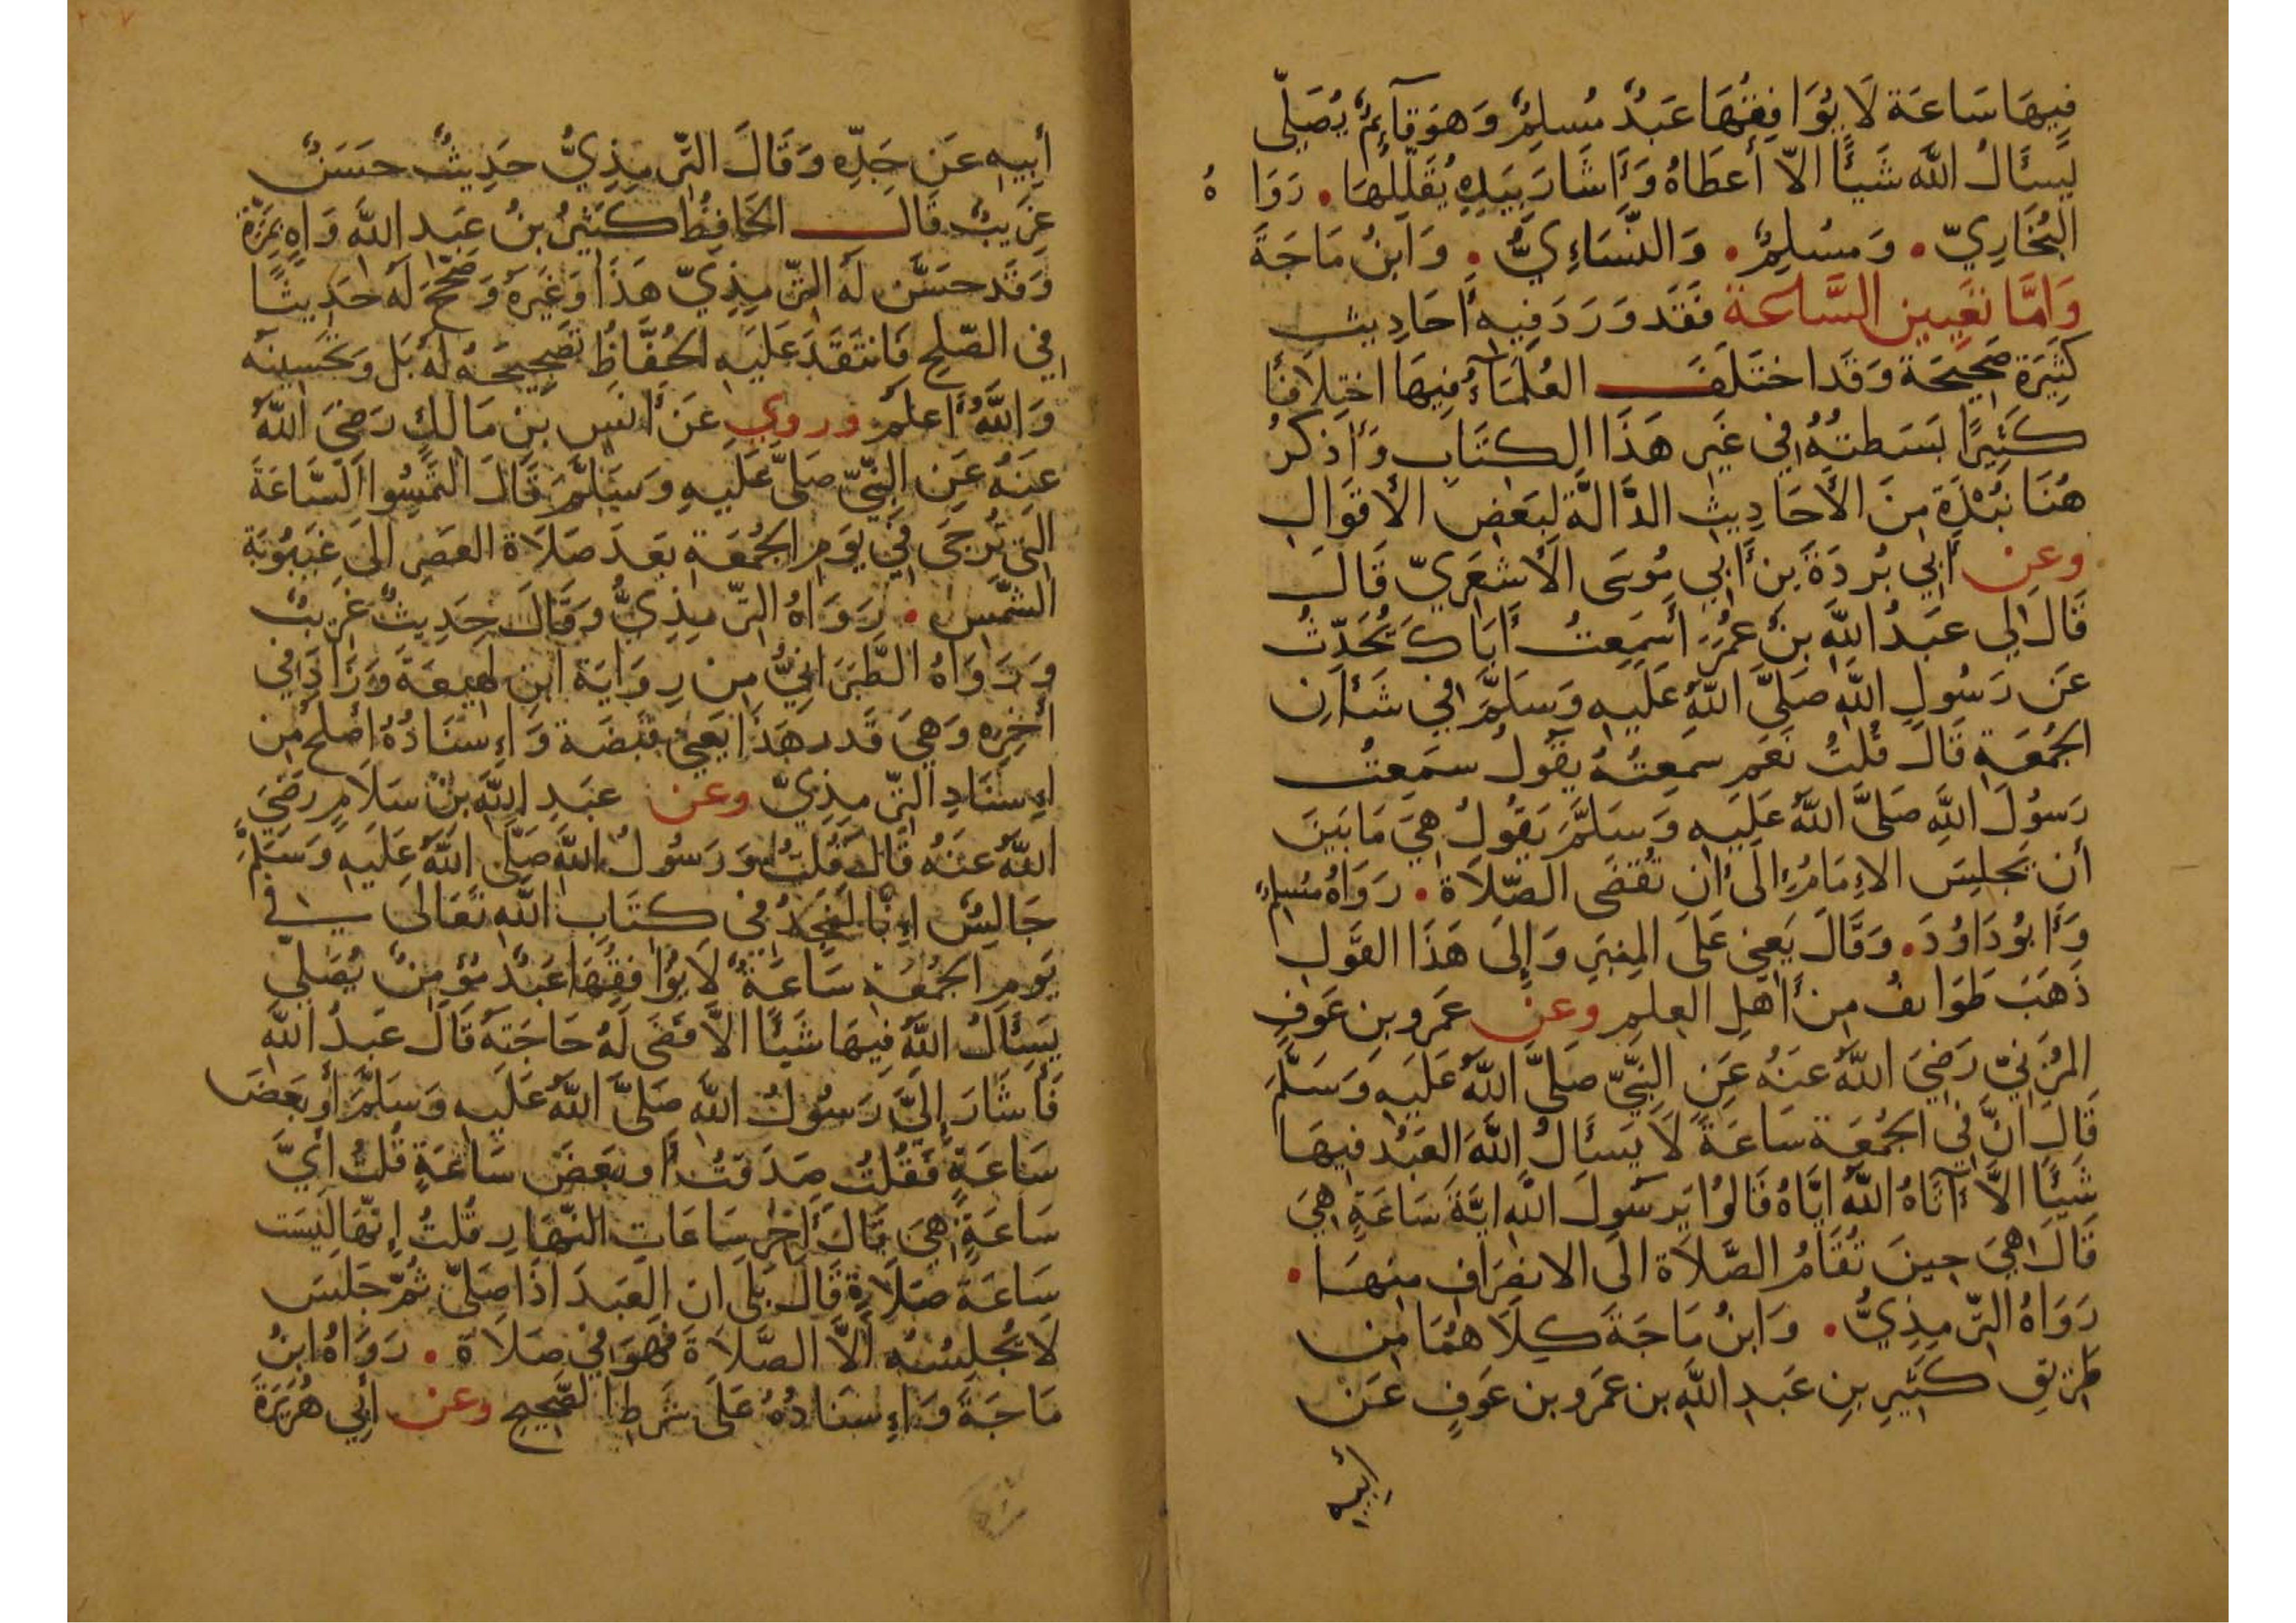 فِيهَا سَاعَة لَا يُوَافِقُهَا عَبْدٌ مُسلِمٌ وَهوَ قَآئِمٌ يُصَلِّى
يَسأَلُ اللَّه شَيئًا الّا أَعطَاهُ وَأَشَارَ بِيَدِهِ يُقَلِّلُهَا . رَوَاهُ
البُخَارِيّ . وَمسُلِمٌ . وَالنَّسَاءِيُّ . وَابنُ مَاجَةَ
وَامَّا تَعَيِين السَّاعَة فَقَد وَرَدَ فِيهِ أَحَادِيث
كَثِيَرة صَحِيحَة وَقَد اختَلَفَ العُلَمَآءُ فِيهَا اختِلَافًا
كَثِيرًا بَسَطتُهُ فِي غَيرِ هَذَا الكتَابِ وَأَذكرُ
هُنَا نُبْذَة مِنَ الأَحَادِيثِ الدَّالَّة لِبَعضِ الأَقوَالِ
وعن أَبِي بُردَةَ بنِ أَبِي مُوسَى الأَشعَرِيّ قَالَ
قَالَ لِي عَبدُ اللَّه بنُ عُمَرَ أَسَمِعتَ أَبَاكَ يُحَدِّثُ
عَن رَسُولِ اللَّه صَلىَّ اللَّهُ عَلَيهِ وَسَلَّمَ فِي شَأنِ
الجُمُعَةِ قَالَ قُلتُ نَعَم سَمِعتُهُ يَقُولُ سَمِعتُ
رَسُولَ اللَّهِ صَلىَّ اللَّهُ عَلَيهِ وَسَلَّمَ يَقُولُ هِيَ مَا بَينَ
أَن يَجلِسَ الاِمَامُ اِلَى أَن تُقضَى الصَّلَاة . رَوَاهُ مسُلِمٌ
وَأَبُو دَاوُدَ . وَقَالَ يَعنِي عَلَى المِنبَرِ وَإِلَى هَذَا القَولِ
ذَهَبَ طَوَائفُ مِن أَهلِ العِلمِ وعن عَمرو بن عَوفٍ
المُزَنِيّ رَضِيَ اللَّهُ عَنهُ عَنِ النَّبِيّ صَلىَّ اللَّهُ عَلَيهِ وَسَلَّمَ
قَالَ انَّ فِي الجُمُعَة سَاعَةً لَا يَسأَلُ اللَّهَ العَبْدُ فِيهَا
شَيئًا الاَّ آتَاهُ اللَّهُ ايَّاهُ قَالُوا يَرسُولَ اللَّهِ ايَّةَ سَاعَةٍ هِيَ
قَالَ هِيَ حِينَ تُقَامُ الصَّلَاة الَى الانصِرَافِ مِنهَا .
رَوَاهُ التِّرمِذِيُّ . وَابنُ مَاجَةَ كِلَاهُمَا مِن
طَرِيقِ كَثِيرِ بنِ عَبدِ اللَّهِ بن عَمرو بن عَوفٍ عَن
أبيه
أَبِيهِ عَن جَدِّهِ وَقَالَ التِّرمِذِيُّ حَدِيثٌ حَسَنٌ
غَرِيبٌ قَالَ الحَافِظُ كَثِيرُ بنُ عَبدِ اللَّه وَاهٍ بِمَرَّة
وَقَد حَسَّنَ لَهُ التِّرمِذِيّ هَذَا وَغَيرَهُ وَصَحَّحَ لَهُ حَدِيثًا
فِي الصُّلحِ فَانتَقَدَ عَلَيهِ الحُفَّاظُ تَصحِيحَهُ لَهُ بَل وَتَحسِينَه
وَاللَّهُ أَعلَمُ وروي عَن أَنَسِ بنِ مَالِكٍ رَضِيَ اللَّهُ
عَنهُ عَنِ النَّبِيّ صَلىّ عَلَيهِ وَسَلَّمَ قَالَ التَمِسُوا السَّاعَةَ
التِي تُرجَى فِي يَومِ الجُمُعَةِ بَعدَ صَلَاة العَصرِ الَى غَيبُوبَة
الشَّمسِ . رَوَاهُ التِّرمِذِيُّ وَقَالَ حَدِيثٌ غَرِيبٌ
وَرَوَاهُ الطَّبَرَانِيُّ مِن رِوَايَة ابنِ لهِيعَةَ وَزَادَ فِي
أخِرِه وَهِيَ قَدر هَذَا يَعنِي قَبضَة وَاِسنَادُهُ اَصلَح مِن
اِسنَادِ التِّرمِذِيّ وعن عَبدِ اللَّهِ بنِ سَلَامٍ رَضِيَ
اللَّهُ عَنهُ قَالَ قُلتُ وَرَسُولُ اللَّه صَلَّى اللَّهُ عَلَيهِ وَسَلَّمَ
جَالِسٌ اِنَّا لَنَجِدُ فِي كتَابِ اللَّهِ تَعَالَى فِي
يَومِ الجُمُعَة سَاعَةٌ لَا يُوَافِقُهَا عَبْدٌ مُؤمِنٌ يُصَلِّي
يَسأَلُ اللَّهَ فِيهَا شَيئًا الاَّ قَضَى لَهُ حَاجَتَهُ قَالَ عَبدُ اللَّهِ
فَأَشَارَ إِلَيَّ رَسُولُ اللَّهِ صَلىَّ اللَّهُ عَلَيهِ وَسَلَّمَ أَو بَعضَ
سَاعَةٍ فَقُلتُ صَدَقتَ أَو بَعضَ سَاعَةٍ قُلتُ أَيَّ
سَاعَةٍ هِيَ قَالَ أَخِرُ سَاعَاتِ النَّهَارِ قُلتُ اِنَّهَا لَيسَت
سَاعَة صَلَاةٍ قَالَ بَلَى ان العَبدَ اذَا صَلىّ ثُمّ جَلَسَ
لَا يُجلِسُهُ اَلاَّ الصَّلَاةَ فَهوَ فِي صَلَاة . رَوَاهُ ابنُ
مَاجَةَ وَاِسنَادُهُ عَلَى شَرطِ الصَّحِيحِ وعن أَبِي هُرَيرَةَ